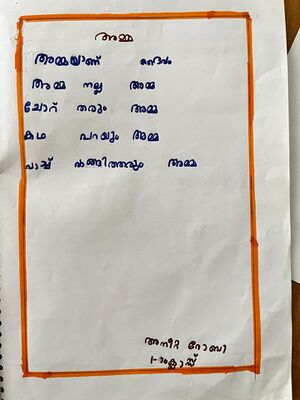 അമ്മ
അമ്മയാണ് ദൈവം
അമ്മ നല്ല അമ്മ
ചോറ് തരും അമ്മ
കഥ പറയും അമ്മ
അമ്മ
അനീറ്റ റോബി
1-ാംക്ലാസ്സ്